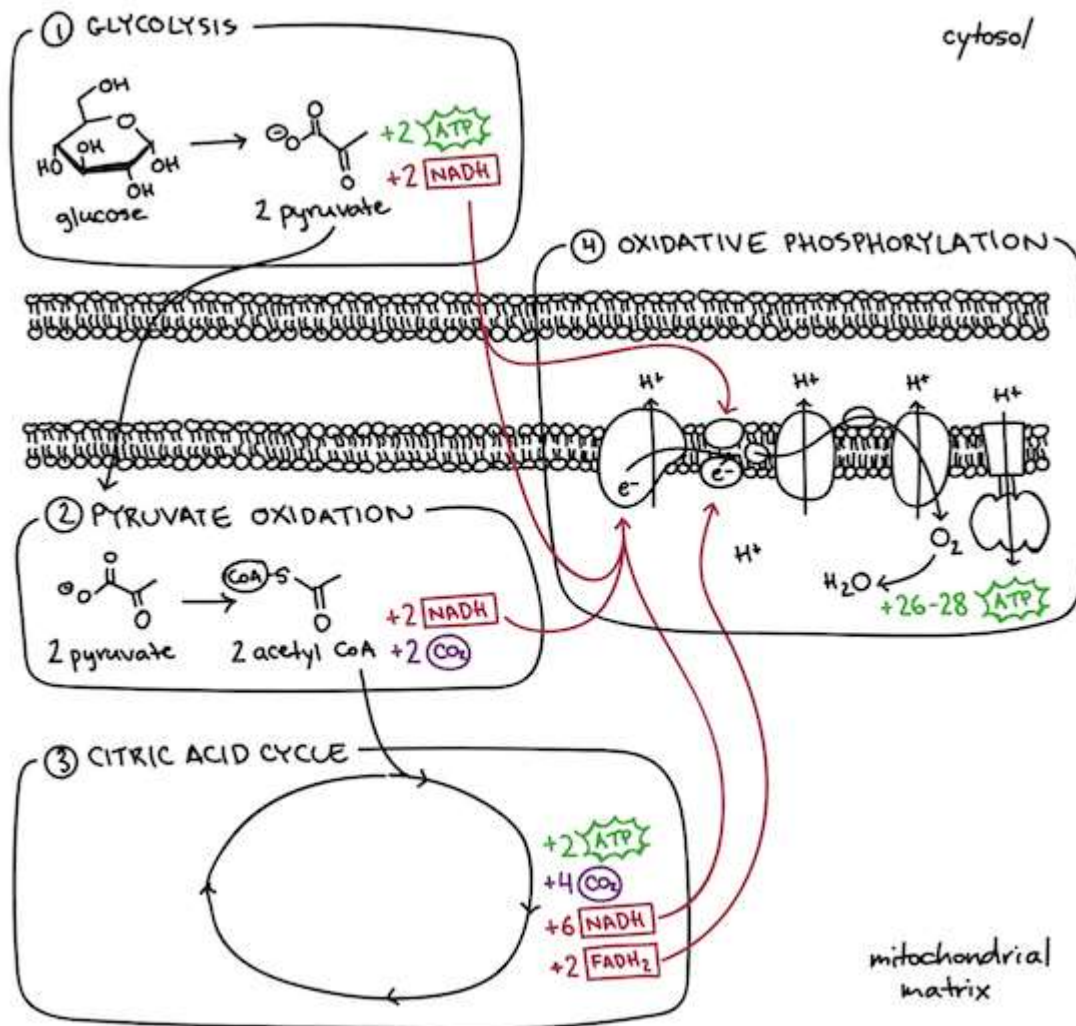 ① GLYCOLYSIS
cytosol
OH
O
OH
HO
OH
OH
glucose
⊖O
O
O
2 pyruvate
+2 ATP
+2 NADH
④ OXIDATIVE PHOSPHORYLATION
H+
H+
H+
H+
e-
e-
H+
O2
H2O
+26-28 ATP
② PYRUVATE OXIDATION
⊖O
O
O
2 pyruvate
CoA-S
O
2 acetyl CoA
+2 NADH
+2 CO2
③ CITRIC ACID CYCLE
+2 ATP
+4 CO2
+6 NADH
+2 FADH2
mitochondrial
matrix